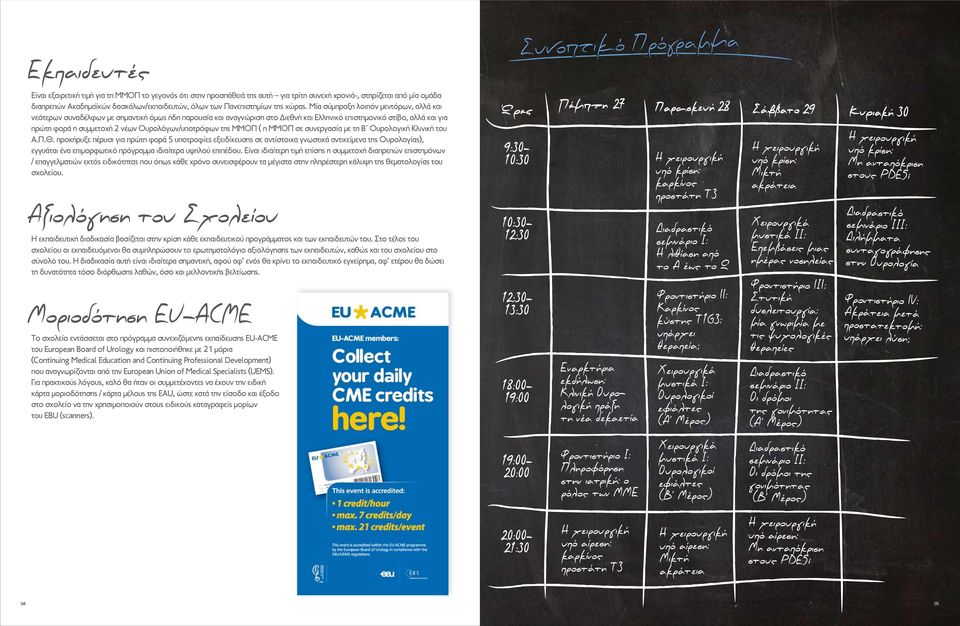 Εκπαιδευτές
Είναι εξαιρετική τιμή για τη ΜΜΟΠ το γεγονός ότι στην προσπάθειά της αυτή – για τρίτη συνεχή χρονιά-, στηρίζεται από μία ομάδα
διαπρεπών Ακαδημαϊκών δασκάλων/εκπαιδευτών, όλων των Πανεπιστημίων της χώρας. Μία σύμπραξη λοιπόν μεντόρων, αλλά και
νεότερων συναδέλφων με σημαντική όμως ήδη παρουσία και αναγνώριση στο Διεθνή και Ελληνικό επιστημονικό στίβο, αλλά και για
πρώτη φορά η συμμετοχή 2 νέων Ουρολόγων/υποτρόφων της ΜΜΟΠ ( η ΜΜΟΠ σε συνεργασία με τη Β΄ Ουρολογική Κλινική του
Α.Π.Θ. προκήρυξε πέρυσι για πρώτη φορά 5 υποτροφίες εξειδίκευσης σε αντίστοιχα γνωστικά αντικείμενα της Ουρολογίας),
εγγυάται ένα επιμορφωτικό πρόγραμμα ιδιαίτερα υψηλού επιπέδου. Είναι ιδιαίτερη τιμή επίσης η συμμετοχή διαπρεπών επιστημόνων
/ επαγγελματιών εκτός ειδικότητας που όπως κάθε χρόνο συνεισφέρουν τα μέγιστα στην πληρέστερη κάλυψη της θεματολογίας του
σχολείου.
Αξιολόγηση του Σχολείου
Η εκπαιδευτική διαδικασία βασίζεται στην κρίση κάθε εκπαιδευτικού προγράμματος και των εκπαιδευτών του. Στο τέλος του
σχολείου οι εκπαιδευόμενοι θα συμπληρώσουν το ερωτηματολόγιο αξιολόγησης των εκπαιδευτών, καθώς και του σχολείου στο
σύνολό του. Η διαδικασία αυτή είναι ιδιαίτερα σημαντική, αφού αφ' ενός θα κρίνει το εκπαιδευτικό εγχείρημα, αφ' ετέρου θα δώσει
τη δυνατότητα τόσο διόρθωσης λαθών, όσο και μελλοντικής βελτίωσης.
Μοριοδότηση EU-ACME
Το σχολείο εντάσσεται στο πρόγραμμα συνεχιζόμενης εκπαίδευσης EU-ACME
του European Board of Urology και πιστοποιήθηκε με 21 μόρια
(Continuing Medical Education and Continuing Professional Development)
που αναγνωρίζονται από την European Union of Medical Specialists (UEMS).
Για πρακτικούς λόγους, καλό θα ήταν οι συμμετέχοντες να έχουν την ειδική
κάρτα μοριοδότησης / κάρτα μέλους της EAU, ώστε κατά την είσοδο και έξοδο
στο σχολείο να την χρησιμοποιούν στους ειδικούς καταγραφείς μορίων
του EBU (scanners).
EU ACME
EU-ACME members:
Collect
your daily
CME credits
here!
EU ACME
This event is accredited:
• 1 credit/hour
• max. 7 credits/day
• max. 21 credits/event
This event is accredited within the EU-ACME programme
by the European Board of Urology in compliance with the
EBU/UEMS regulations.
ebu
04
Συνοπτικό Πρόγραμμα
Ώρες
Πέμπτη 27
Παρασκευή 28
Σάββατο 29
Κυριακή 30
9:30-
10:30
Η χειρουργική
υπό κρίση:
καρκίνος
προστάτη Τ3
Η χειρουργική
υπό κρίση:
Μικτή
ακράτεια
Η χειρουργική
υπό κρίση:
Μη ανταπόκριση
στους PDE5i
10:30-
12:30
Διαδραστικό
σεμινάριο Ι:
Η λιθίαση από
το Α έως το Ω
Χειρουργικά
μυστικά ΙΙ:
Επεμβάσεις μιας
ημέρας νοσηλείας
Διαδραστικό
σεμινάριο ΙΙΙ:
Διλήμματα
συνταγογράφησης
στην Ουρολογία
12:30-
13:30
Φροντιστήριο ΙΙ:
Καρκίνος
κύστης Τ1G3:
υπάρχει
θεραπεία;
Φροντιστήριο ΙΙΙ:
Στυτική
δυσλειτουργία:
μία γνωριμία με
τις ψυχολογικές
θεραπείες
Φροντιστήριο IV:
Ακράτεια μετά
προστατεκτομή:
υπάρχει λύση;
18:00-
19:00
Εναρκτήρια
εκδήλωση:
Κλινική Ουρο-
λογική πράξη
τη νέα δεκαετία
Χειρουργικά
μυστικά Ι:
Ουρολογικοί
εφιάλτες
(Α' Μέρος)
Διαδραστικό
σεμινάριο ΙΙ:
Οι δρόμοι
της γονιμότητας
(Α' Μέρος)
19:00-
20:00
Φροντιστήριο Ι:
Πληροφόρηση
στην ιατρική: ο
ρόλος των ΜΜΕ
Χειρουργικά
μυστικά Ι:
Ουρολογικοί
εφιάλτες
(Β' Μέρος)
Διαδραστικό
σεμινάριο ΙΙ:
Οι δρόμοι της
γονιμότητας
(Β' Μέρος)
20:00-
21:30
Η χειρουργική
υπό αίρεση:
καρκίνος
προστάτη Τ3
Η χειρουργική
υπό αίρεση:
Μικτή
ακράτεια
Η χειρουργική
υπό αίρεση:
Μη ανταπόκριση
στους PDE5i
05